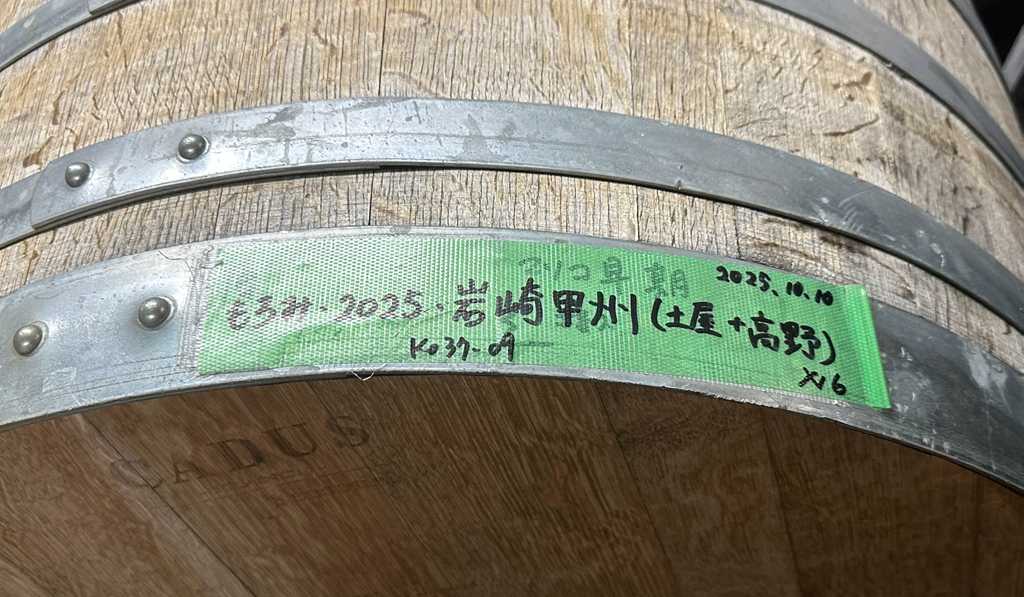 2025.10.10
もろみ・2025・岩崎甲州(土屋+高野)
K037-09
X16
CADUS